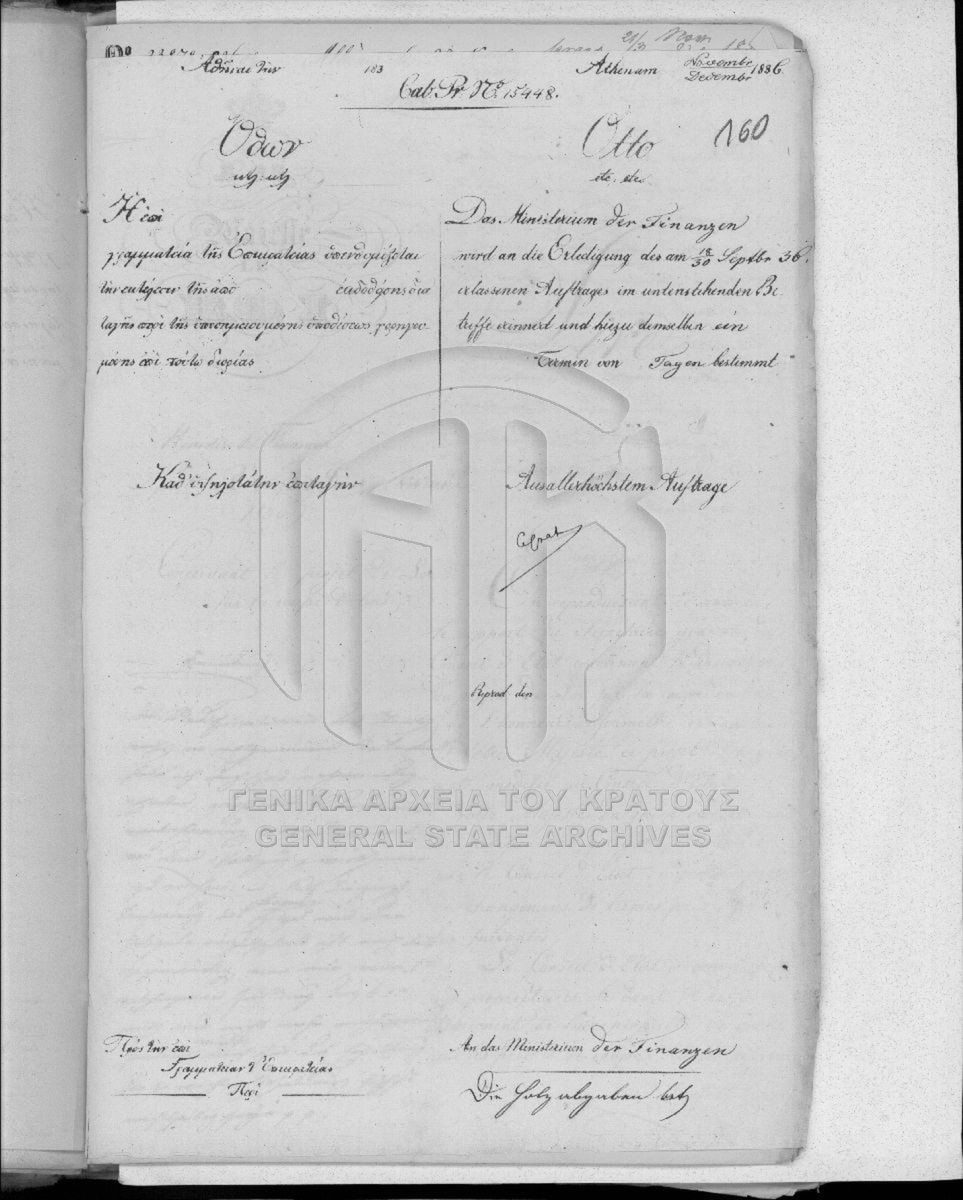 Ἀθῆναι τὴν 183
Athenam Novembr / Decembr 1836.
Cab. Pr. No. 15448.
160
Ὄθων
κτλ. κτλ.
Ἡ ἐπὶ
γραμματεία τῆς Ἐπικρατείας ὑπενθυμίζεται
τὴν ἐκτέλεσιν τῆς ἀπὸ ἐκδοθείσης δια
ταγῆς περὶ τῆς ὑποσημειουμένης ὑποθέσεως χορηγου
μένης ἐπὶ τούτῳ διορίας
Καθ' ὑψηλοτάτην ἐπιταγὴν
Otto
etc. etc.
Das Ministerium der Finanzen
wird an die Erledigung des am 18/30 Septbr 36.
erlassenen Auftrages im untenstehenden Be
treffe erinnert und hiezu demselben ein
Termin von Tagen bestimmt
Aus allerhöchstem Auftrage
Reprod den
ΓΕΝΙΚΑ ΑΡΧΕΙΑ ΤΟΥ ΚΡΑΤΟΥΣ
GENERAL STATE ARCHIVES
Πρὸς τὴν ἐπὶ
Γραμματείαν τ Ἐπικρατείας
Περὶ
An das Ministerium der Finanzen
Die Holzabgaben bet